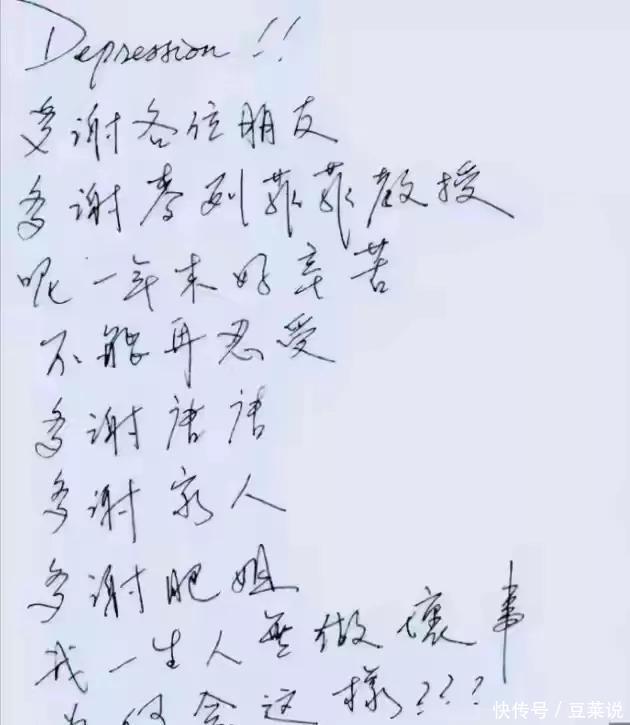 Depression!!
多謝各位朋友
多謝麥列菲菲教授
呢一年來好辛苦
不能再忍受
多謝唐唐
多謝家人
多謝肥姐
我一生人無做壞事
為何會這樣???
快传号／豆菜说